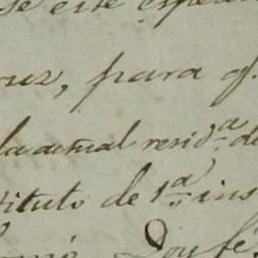 se este
ruz, para q.
la actual resid.ª de
tituto de 1.ª ins
Doy fé